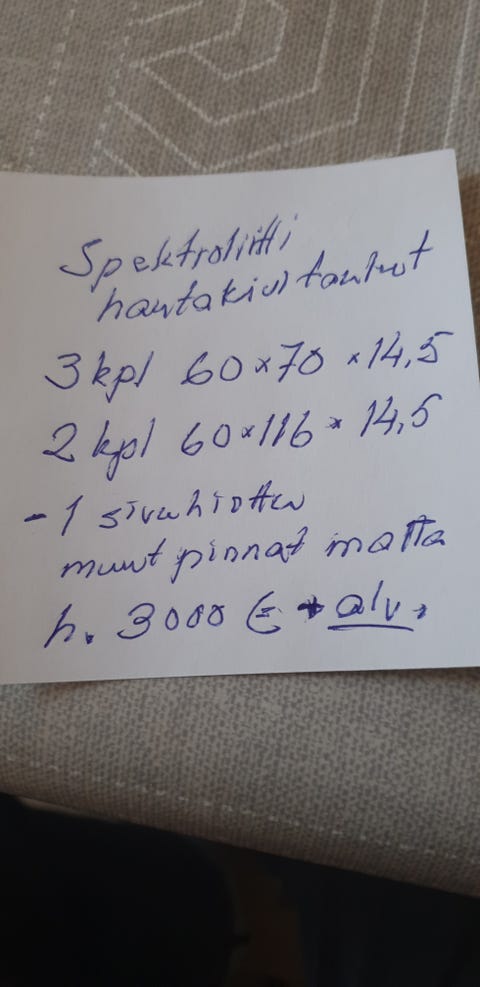 Spektroliitti
hautakivitaulut
3 kpl 60x70 x14,5
2 kpl 60x116x 14,5
- 1 sivu hiottu
muut pinnat matta
h. 3000 € + alv.